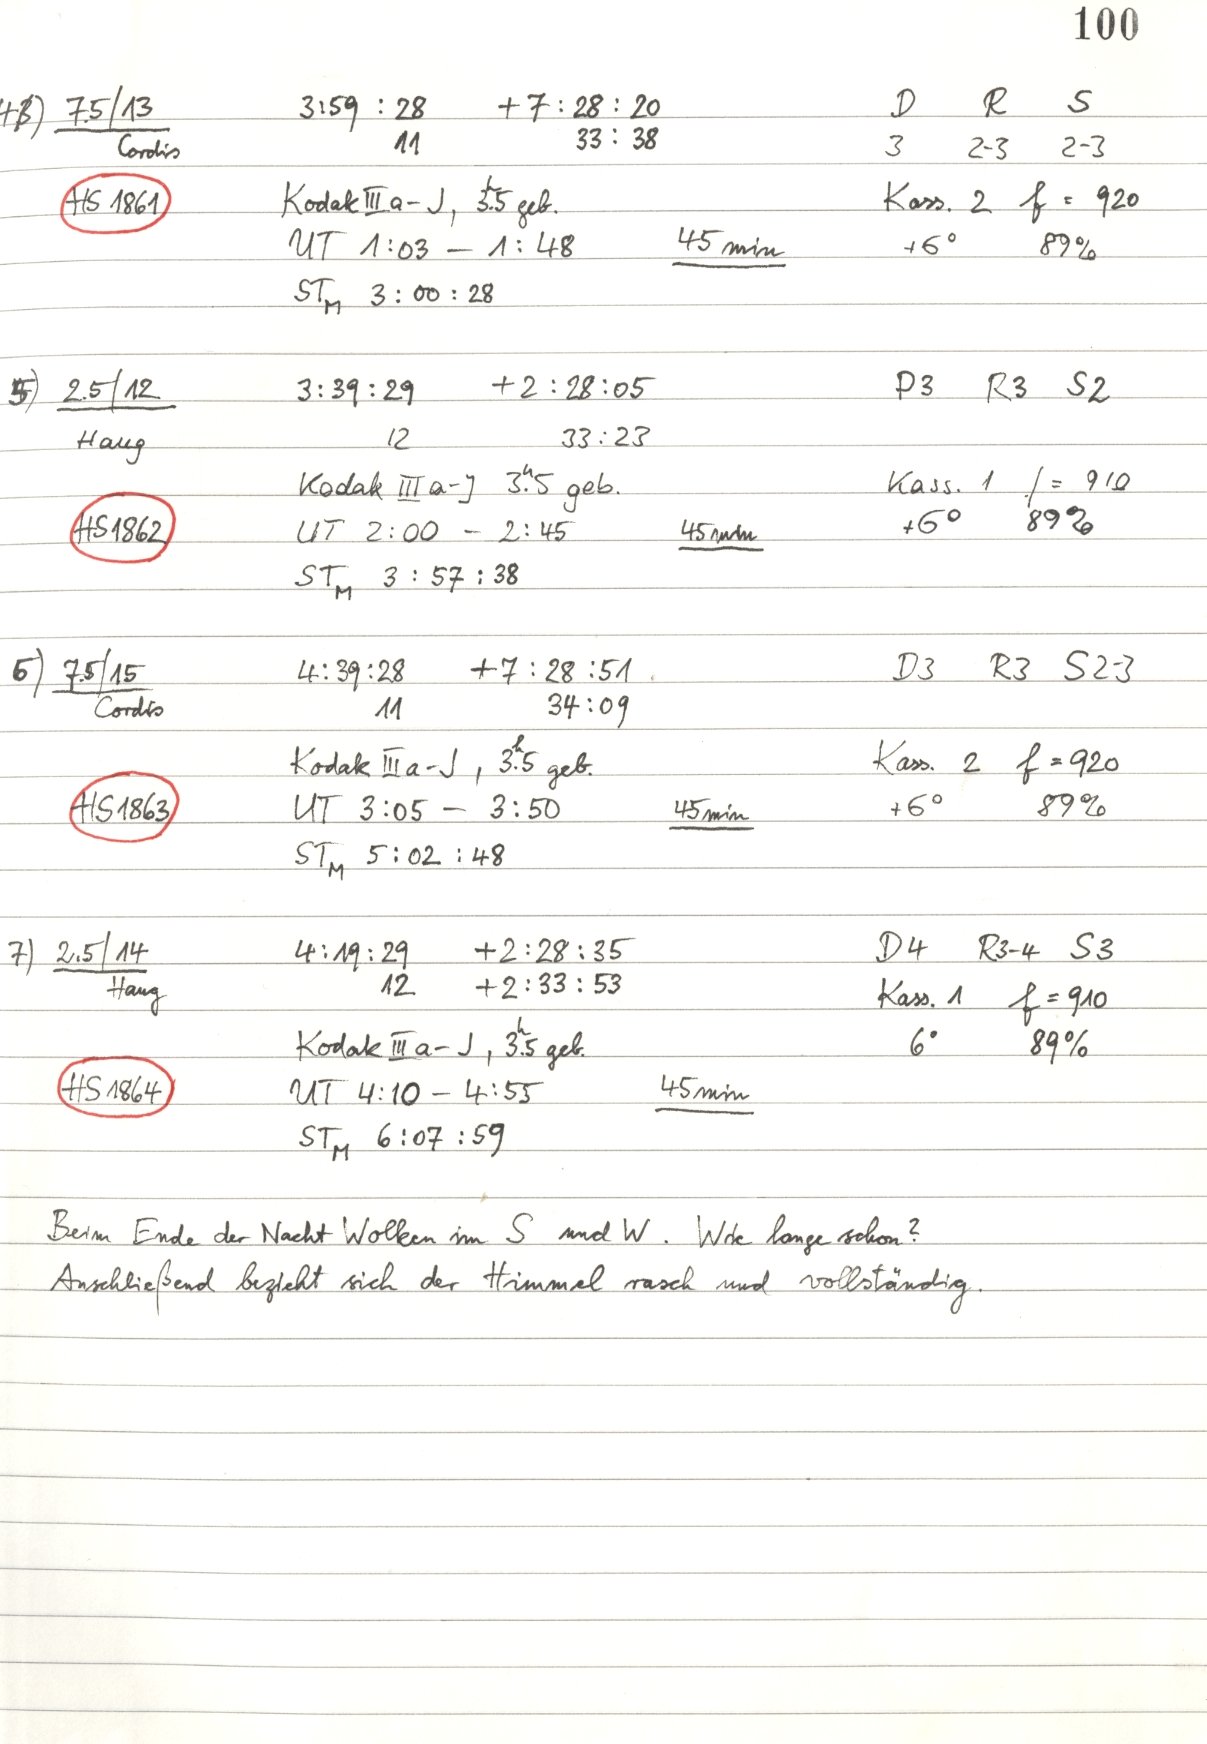 100
4) 7.5/13 3:59:28 +7:28:20 D R S
Cordis 11 33:38 3 2-3 2-3
HS 1861 Kodak III a-J, 3.5h geb. Kass. 2 f = 920
UT 1:03 – 1:48 45 min +6° 89%
STM 3:00:28
5) 2.5/12 3:39:29 +2:28:05 D3 R3 S2
Haug 12 33:23
Kodak III a-J 3.5h geb. Kass. 1 f = 910
HS1862 UT 2:00 – 2:45 45min +6° 89%
STM 3:57:38
6) 7.5/15 4:39:28 +7:28:51 D3 R3 S2-3
Cordis 11 34:09
Kodak III a-J, 3.5h geb. Kass. 2 f = 920
HS1863 UT 3:05 – 3:50 45min +6° 89%
STM 5:02:48
7) 2.5/14 4:19:29 +2:28:35 D4 R3-4 S3
Haug 12 +2:33:53 Kass. 1 f = 910
Kodak III a-J, 3.5h geb. 6° 89%
HS1864 UT 4:10 – 4:55 45min
STM 6:07:59
Beim Ende der Nacht Wolken im S und W. Wie lange schon?
Anschließend bezieht sich der Himmel rasch und vollständig.